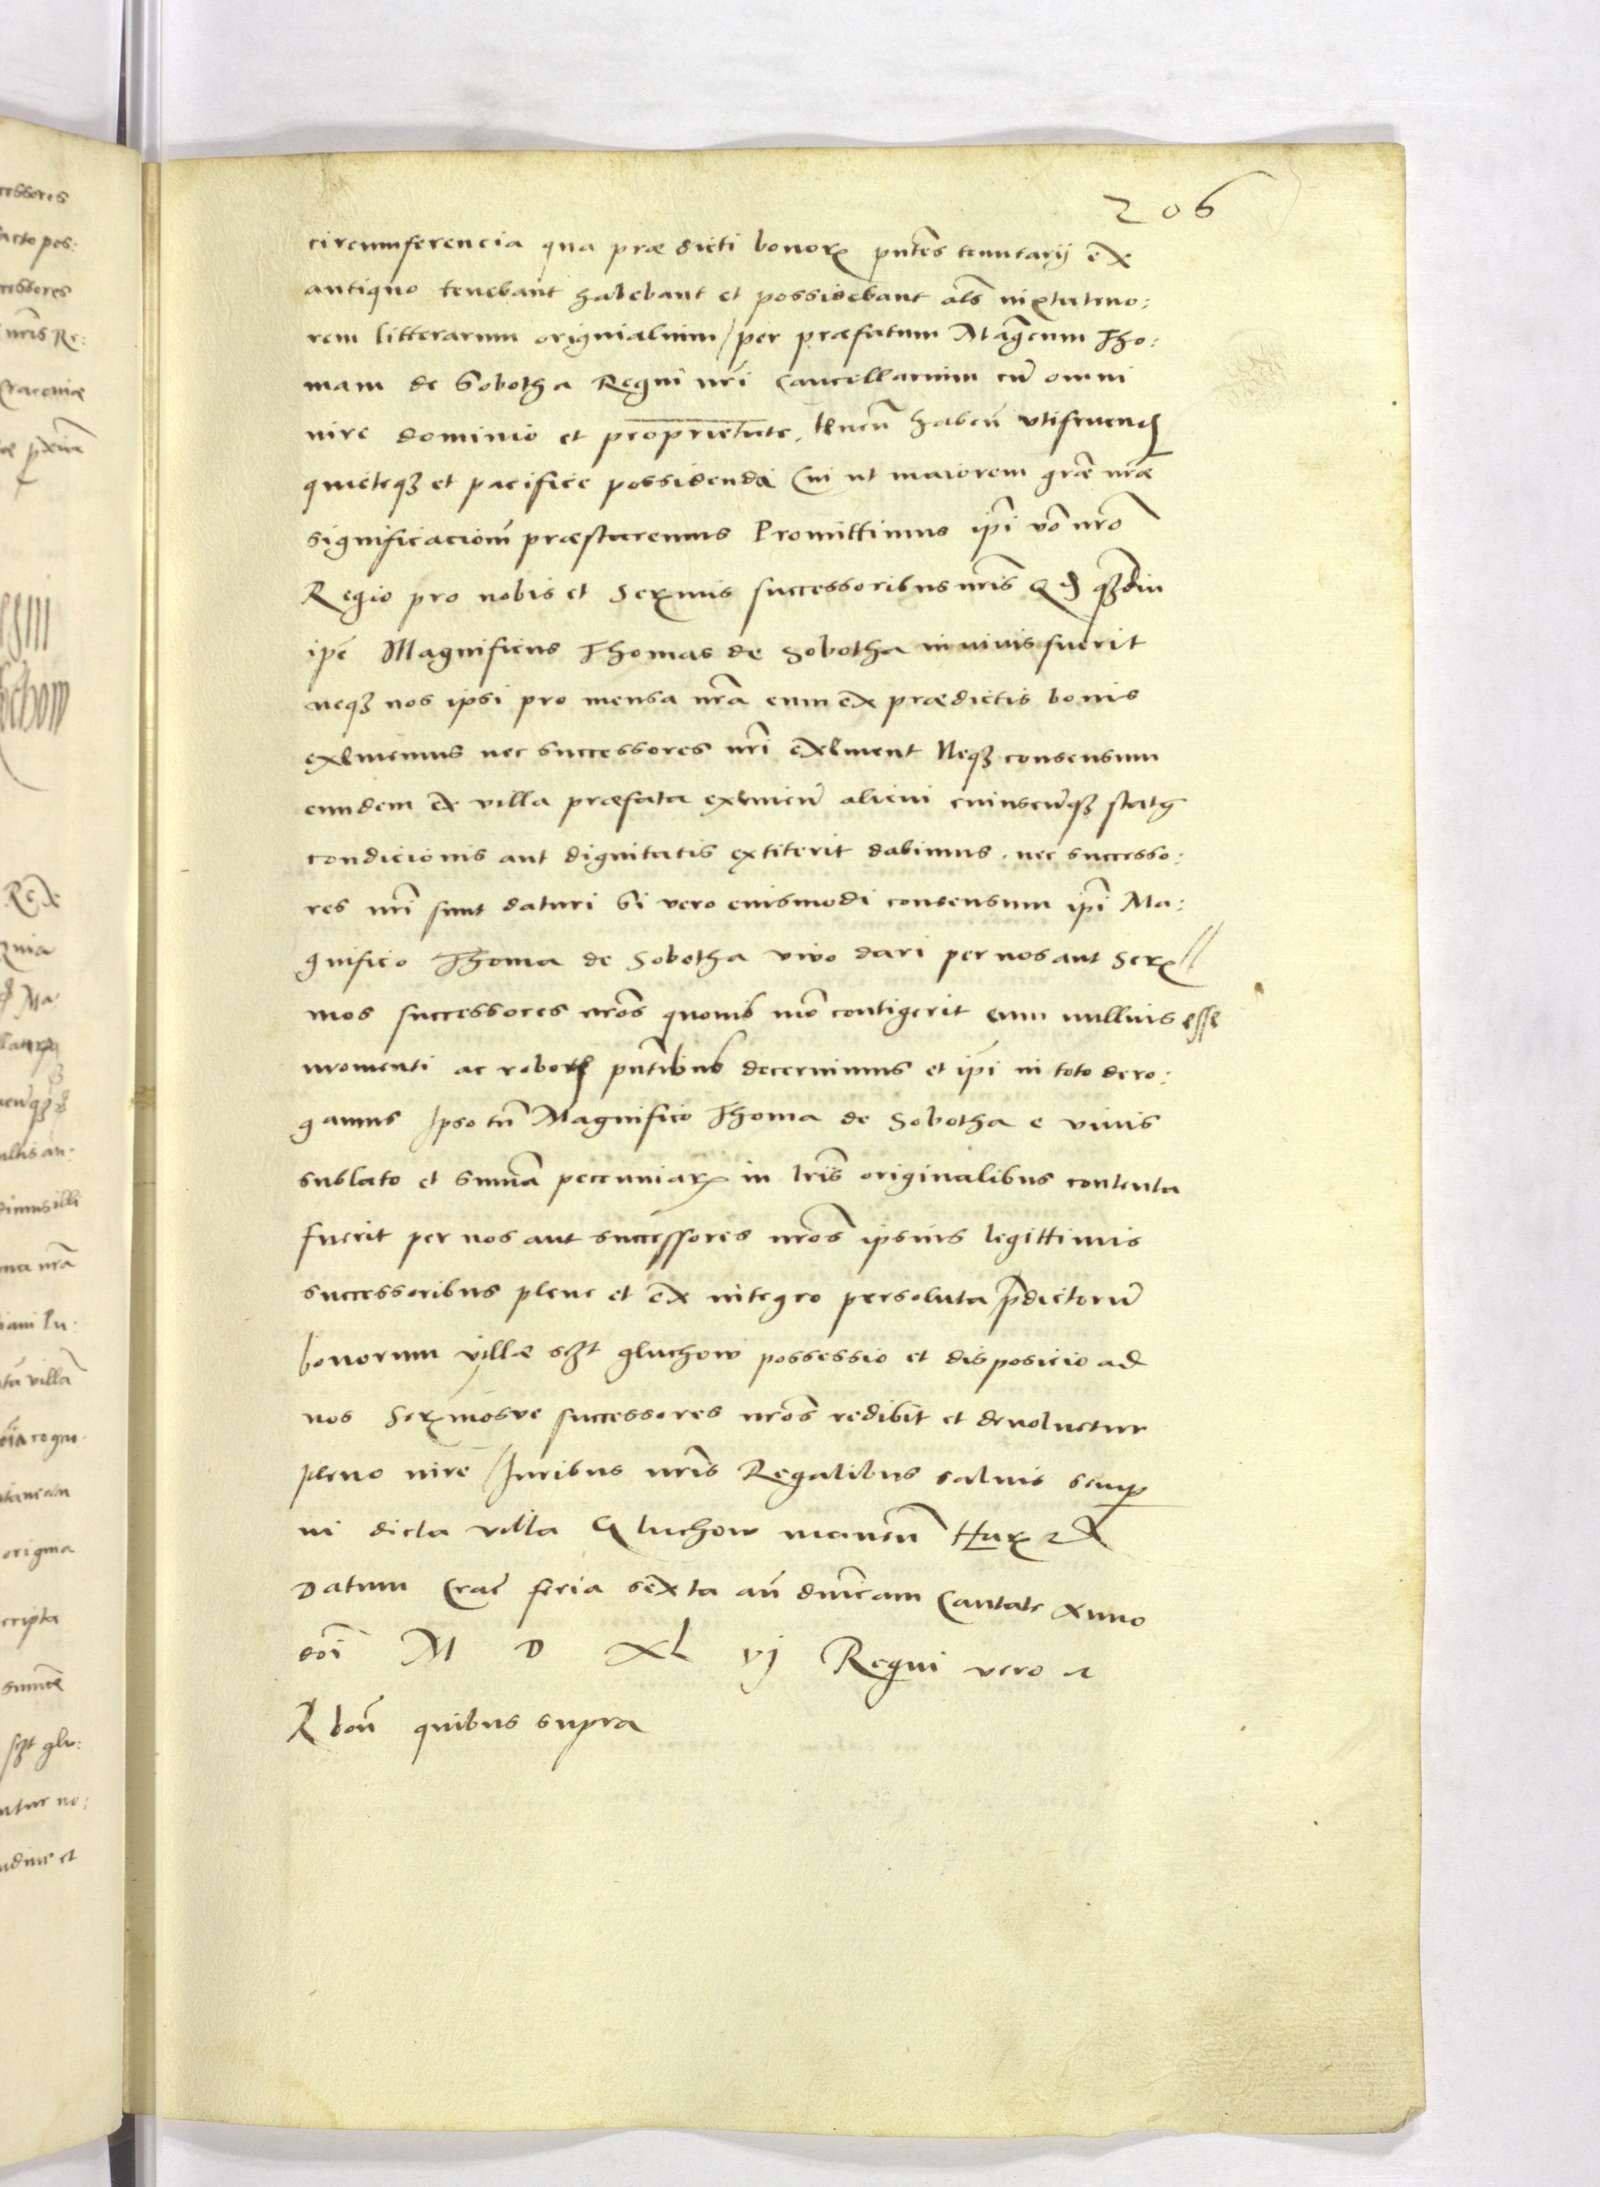 206
circumferencia qua prædicti bonorꝝ pñtes tenutarij ex
antiquo tenebant habebant et possidebant als iuxta teno:
rem litterarum originalium / per præfatum Magcum Tho:
mam de Sobotha Regni nri Cancellarium cū omni
iure dominio et proprietate, tenen haben utifruend
quieteqꝫ et pacifice possidenda Cui ut maiorem græ nræ
significacionē præstaremus Promittimus ipi vbo nro
Regio pro nobis et Serꝫmis successoribus nris Qd qꝫdiu
ipe Magnificus Thomas de Sobotha in vivis fuerit
neqꝫ nos ipsi pro mensa nra eum ex prædictis bonis
eximemus nec successores nri eximent Neqꝫ consensum
eundem ex villa præfata eximen alicui cuiuscūqꝫ status
condicionis aut dignitatis extiterit dabimus . nec successo:
res nri sunt daturi Si vero eiusmodi consensum ipi Ma:
gnifico Thoma de Sobotha vivo dari per nos aut Serꝫ
mos successores nros quovis mo contigerit eum nullius esse
momenti ac roboris pntibus decernimus et ipi in toto dero:
gamus Ipso tn Magnifico Thoma de Sobotha e vivis
sublato et suma peccuniarꝝ in lris originalibus contenta
fuerit per nos aut successores nros ipsius legittimis
successoribus plene et ex integro persoluta pdictorū
bonorum villæ sꝫt gluchow possessio et disposicio ad
nos Serꝫmosve successores nros redibit et devoluetur
pleno iure Iuribus nris Regalibus salvis semp
in dicta villa Gluchow manen Harꝝ
Datum Crac feria sexta añ dnicam Cantate Anno
doi M D XL vj Regni vero
quibus supra